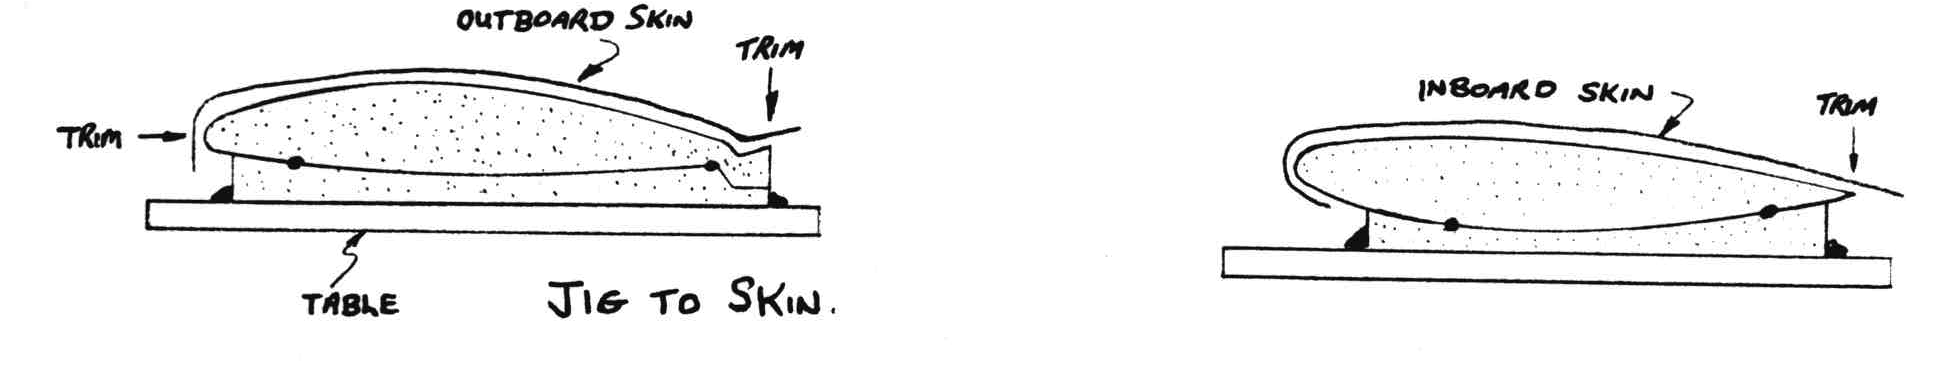 OUTBOARD SKIN
TRIM
TRIM
TABLE
JIG TO SKIN.
INBOARD SKIN
TRIM